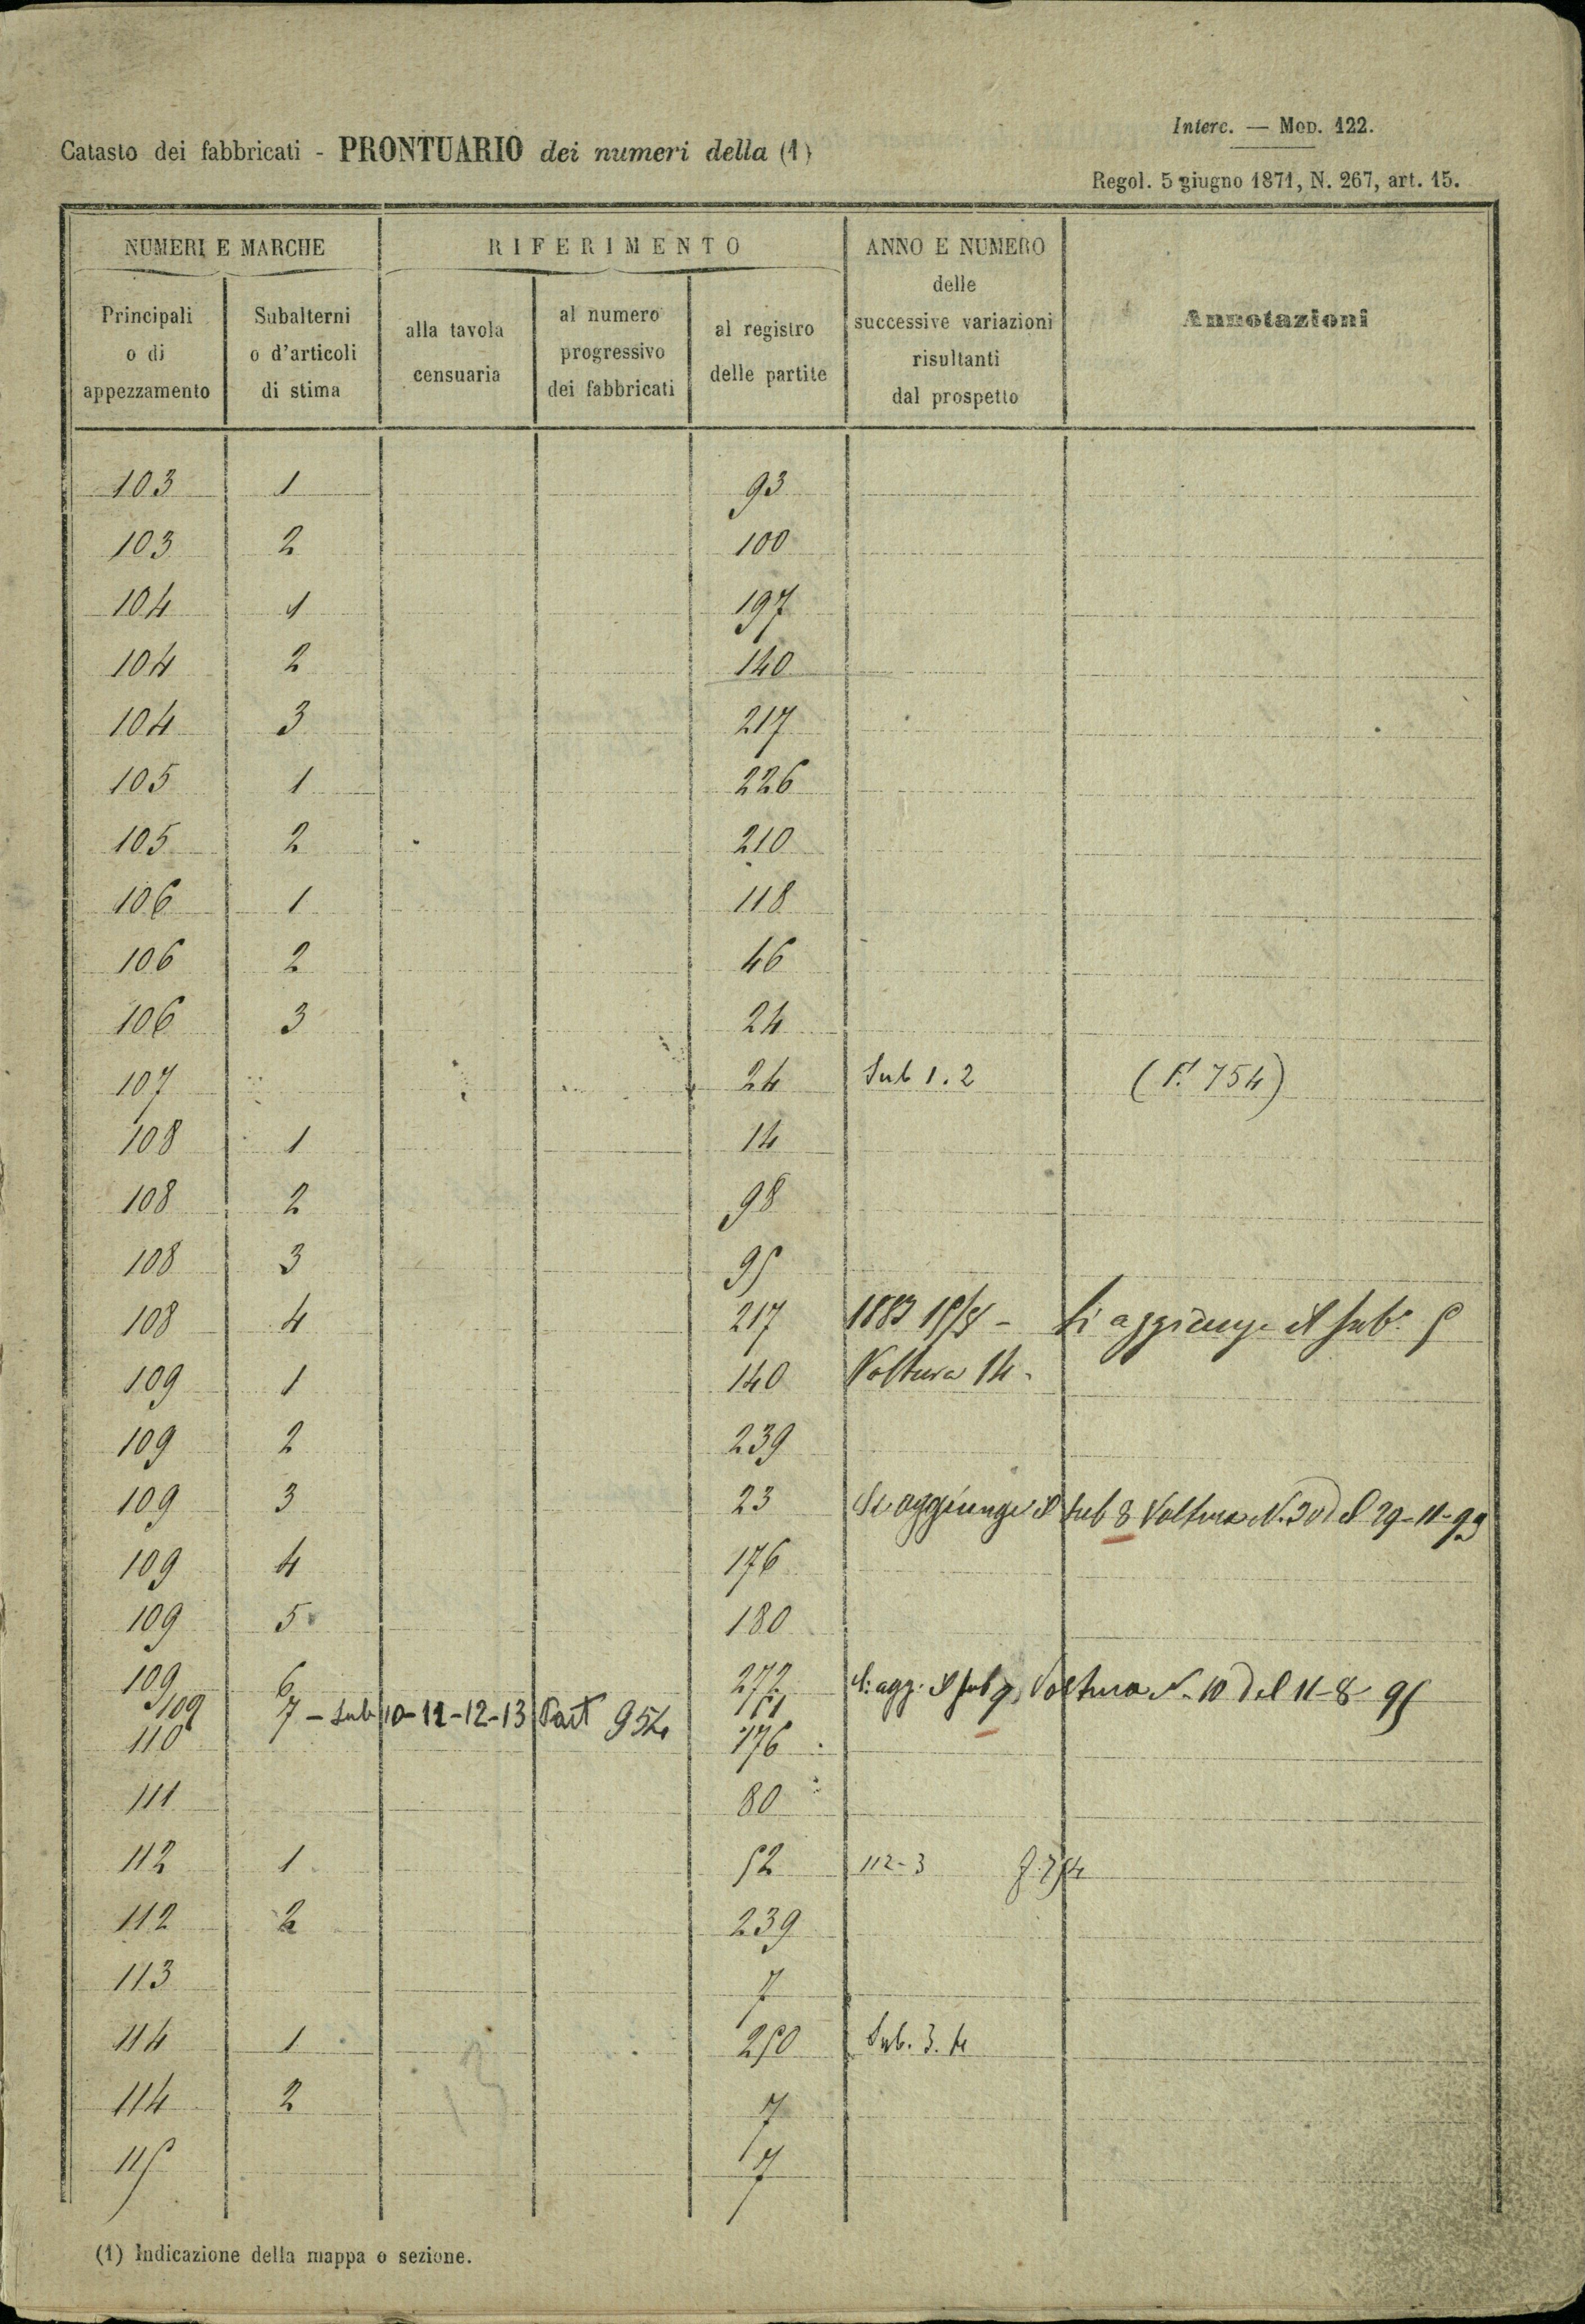 Interc. — Mod. 122.
Catasto dei fabbricati - PRONTUARIO dei numeri della (1)
Regol. 5 giugno 1871, N. 267, art. 15.
NUMERI E MARCHE RIFERIMENTO ANNO E NUMERO delle successive variazioni risultanti dal prospetto Annotazioni
Principali o di appezzamento Subalterni o d'articoli di stima alla tavola censuaria al numero progressivo dei fabbricati al registro delle partite
103 1 93
103 2 100
104 1 197
104 2 140
104 3 217
105 1 226
105 2 210
106 1 118
106 2 46
106 3 24
107 24 Sub 1. 2 (P. 754)
108 1 14
108 2 98
108 3 95
108 4 217 1883 Si aggiunge il sub. 5
109 1 140 Voltura 14
109 2 239
109 3 23 Si aggiunge il sub 8 Voltura N. 30 del 29-11-93
109 4 176
109 5 180
109 6 272 Si agg. il sub 9, Voltura N. 10 del 11-8-95
109 7 - sub 10-11-12-13 Part 954 151
110 176
111 80
112 1 52 112-3
112 2 239
113 7
114 1 250 Sub. 3. 4
114 2 7
115 7
13
(1) Indicazione della mappa o sezione.